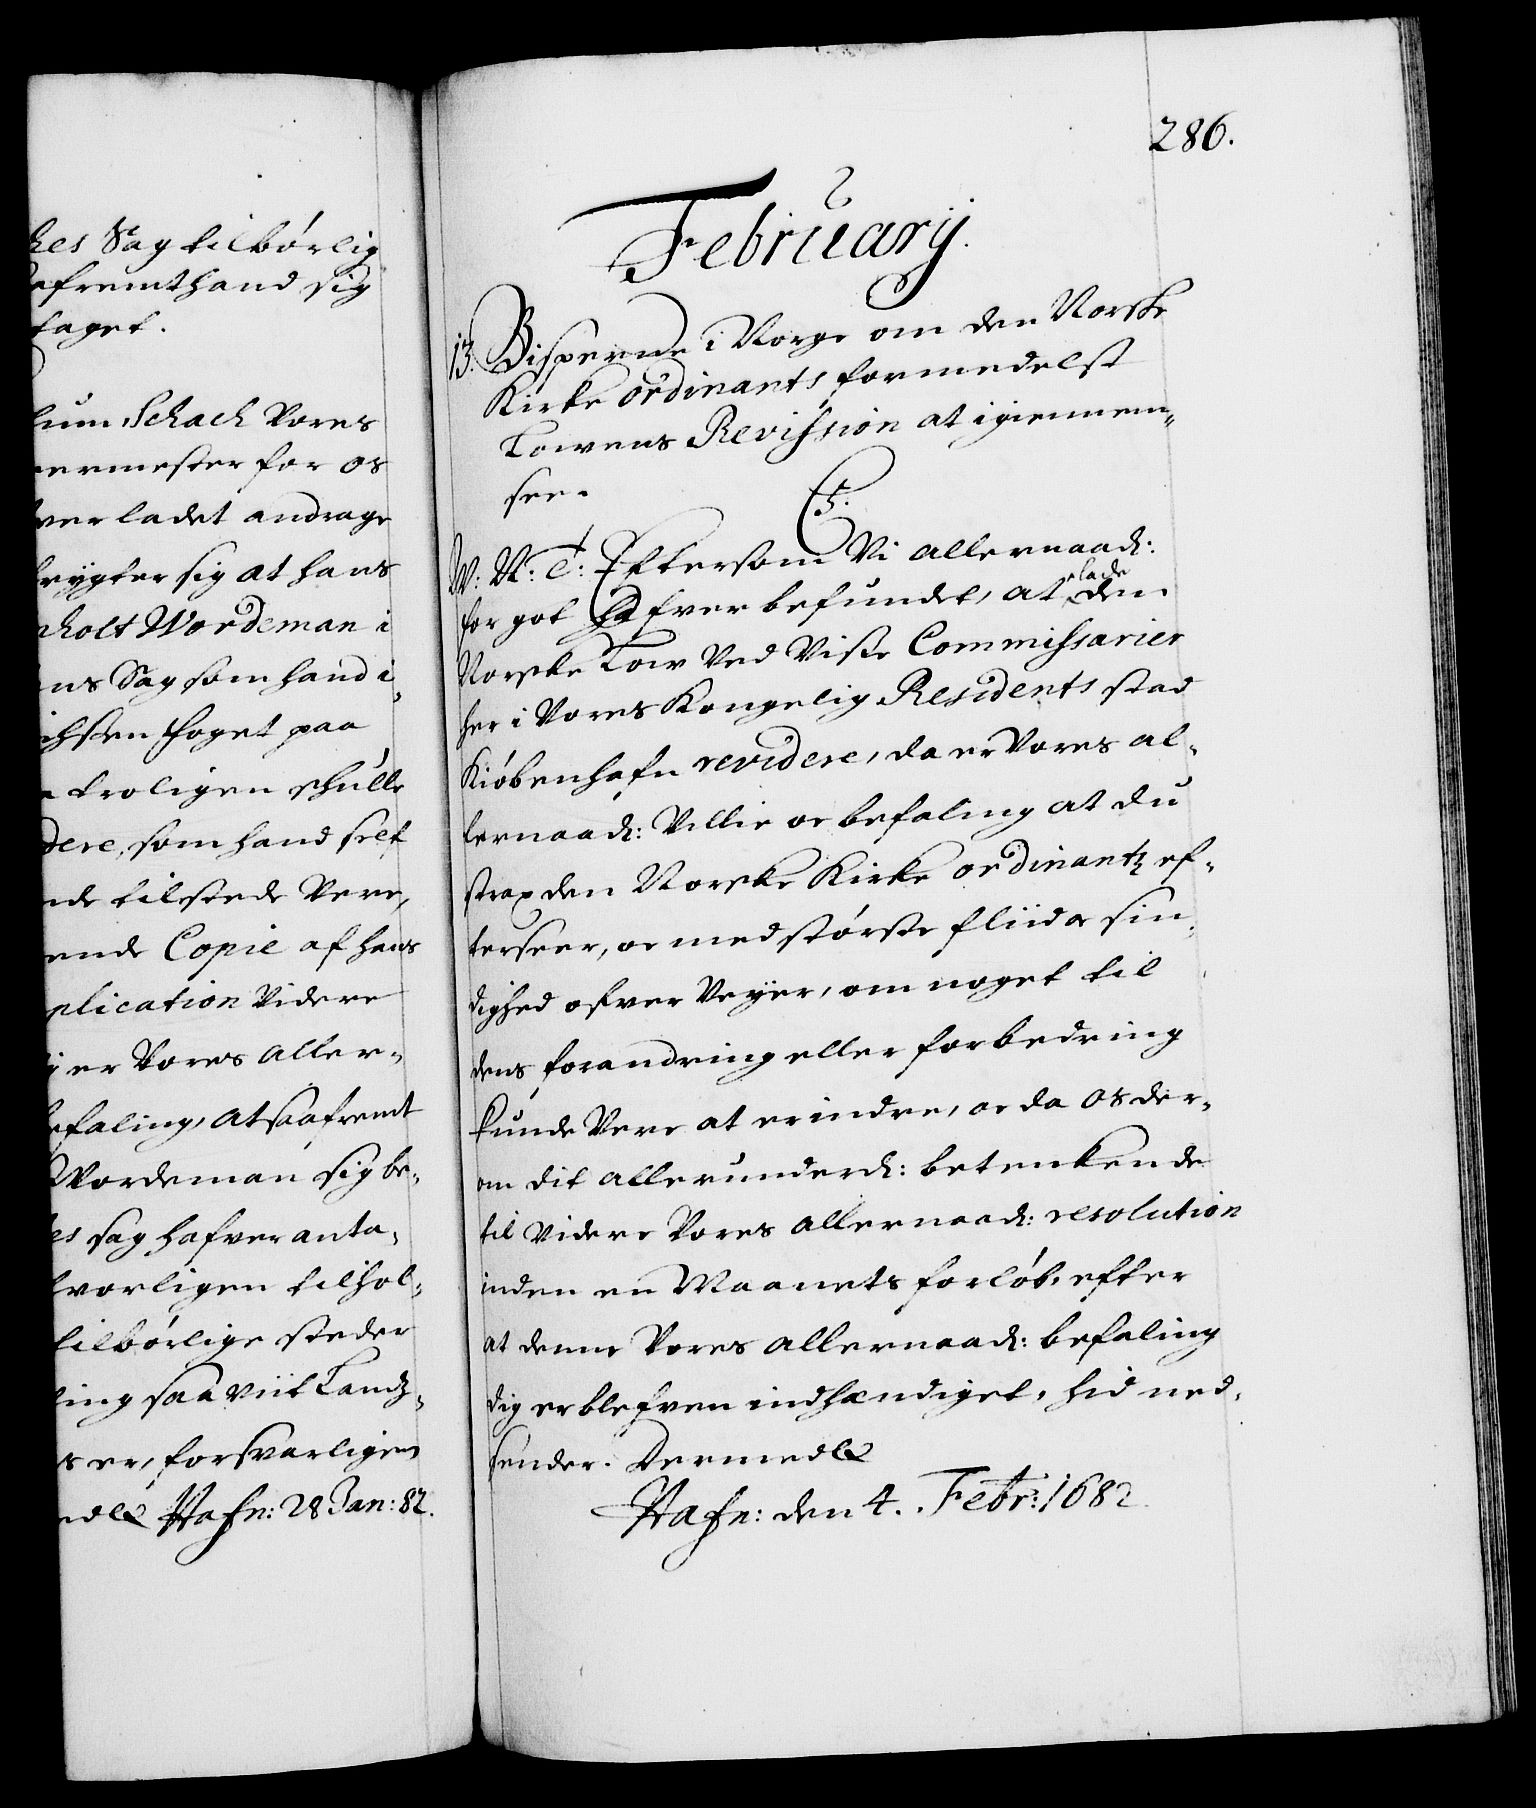 hes Sag tilbørlig
afremt hand sig
taget.
um, Schach Vores
ermester for os
ver ladet andrage
frygter sig at hans
nholt Wordeman i
ns Sag som hand i
ichsen foget paa
troligen schulle
dere, som hand self
nde tilstede Vere,
ende Copie af hans
plication Videre
er Vores aller-
efaling, at saafremt
Wordeman sig be-
es sag hafver anta-
vorligen tilhol-
tilbørlige steder
ting saa viit Landz-
s er, forsvarligen
edlX Hafn: 28 Jan: 82.
286.
Februarij.
13. Bisperne i Norge om den Norske
Kirke ordinants formedelst
Lowens Revission at igiennem-
see.
C5.
W: N: T: Eftersom Vi allernaad:
for got hafver befundet, at lade den
Norske Low Ved Visse Commissarier
her i Vores Kongelig Residents stad
Kiøbenhafn revidere, da er Vores al-
lernaad: Villie oc befaling at du
strax den Norske Kirke ordinantz ef-
terseer, oc med største fliid oc sin-
dighed ofver Vejer, om noget til
dens forandring eller forbedring
kunde Vere at erindre, oc da os der-
om dit allerunderd: betenkende
til Videre Vores allernaad: resolution
inden en Maanets forløb, efter
at denne Vores allernaad: befaling
dig er blefven indhændiget, hid ned-
sender. Dermed &
Hafn: den 4. Febr: 1682